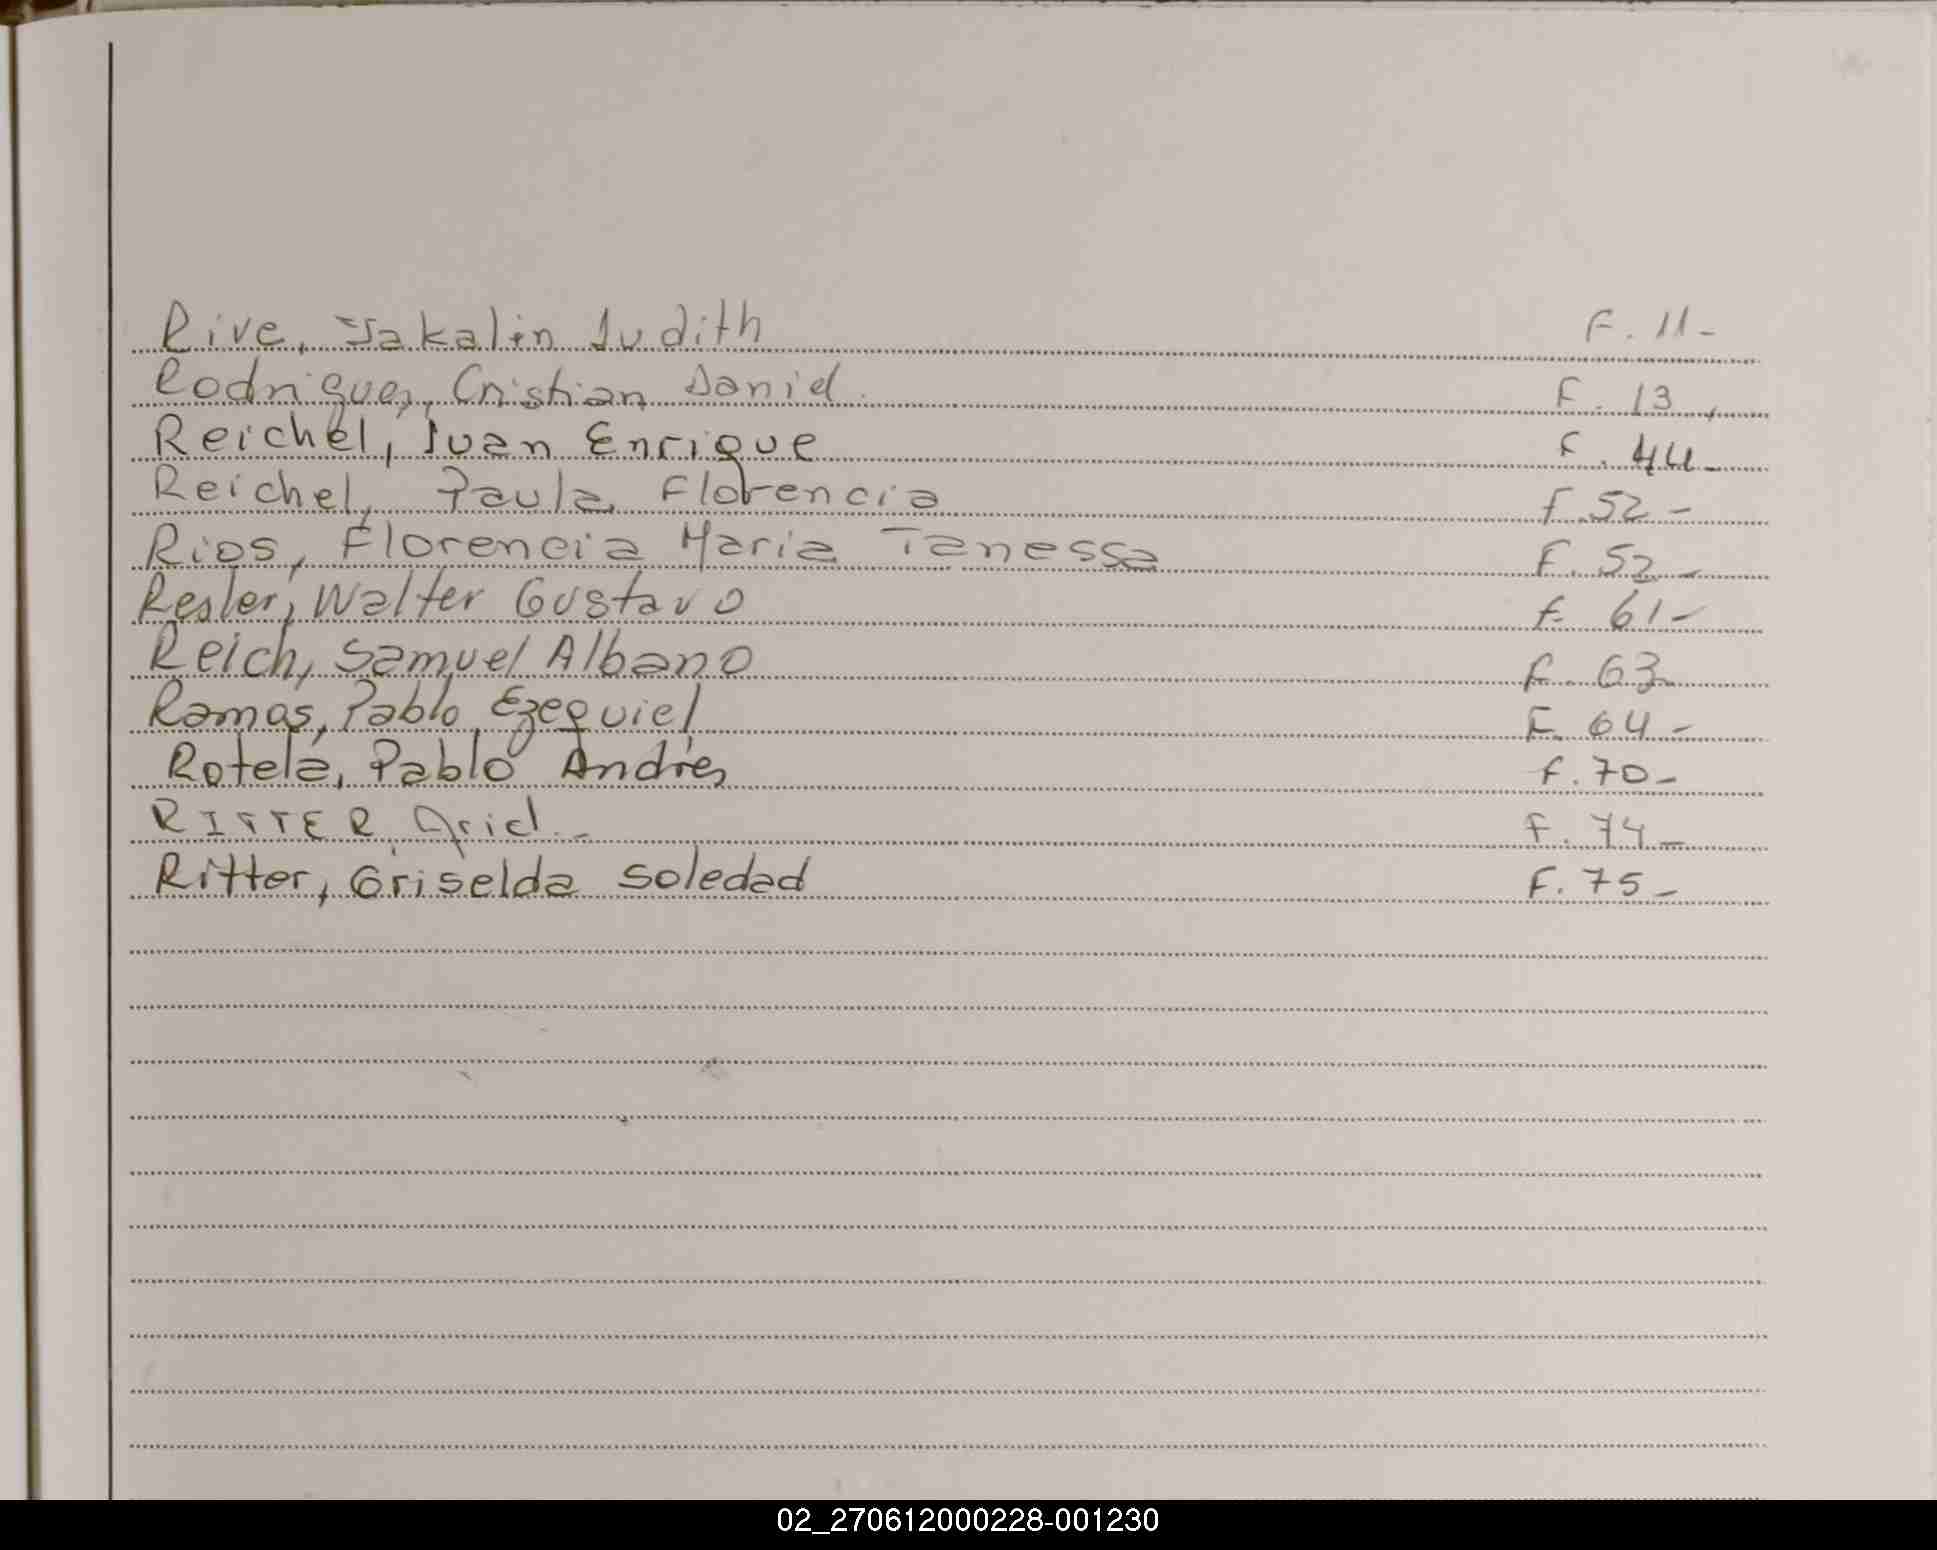 Rive, Jakalin Judith F. 11-
Rodriguez, Cristian Daniel F. 13
Reichel, Juan Enrique F. 44-
Reichel, Paula Florencia F. 52-
Rios, Florencia Maria Tanessa F. 52-
Resler, Walter Gustavo F. 61-
Reich, Samuel Albano F. 63-
Ramos, Pablo Ezequiel F. 64-
Rotela, Pablo Andrés F. 70-
RITTER F. 74-
Ritter, Griselda Soledad F. 75-
02_270612000228-001230